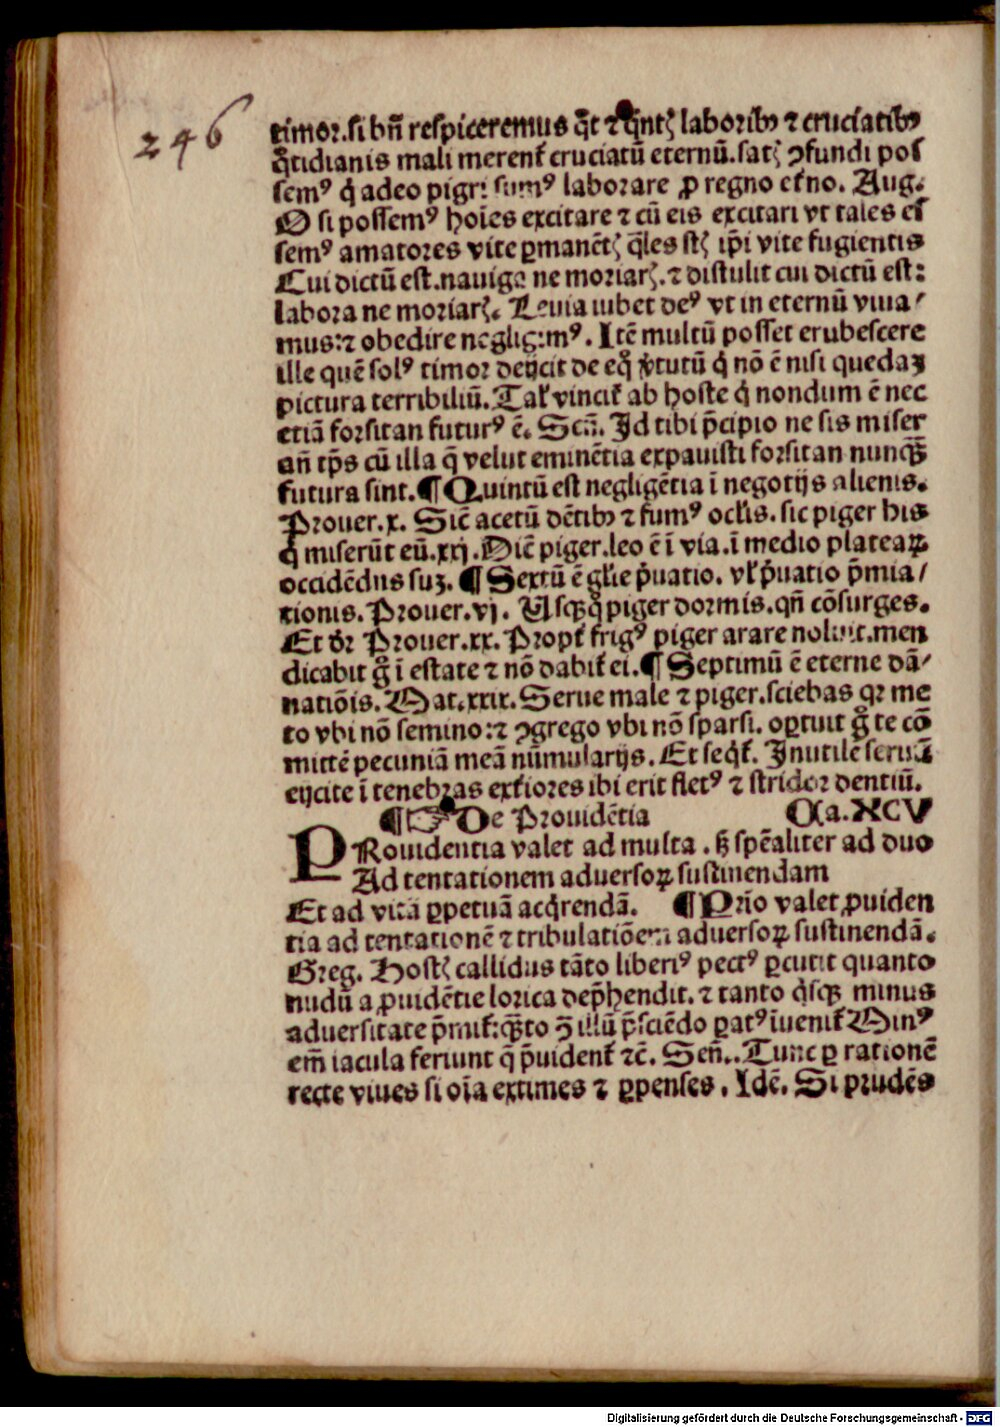 246
timor. si bn̄ respiceremus q̄t ⁊ q̄ntꝭ laboribꝰ ⁊ cruciatibꝰ
q̄tidianis mali merent᷑ cruciatū eternū. satꝭ ꝯfundi pos
semꝰ q̇ adeo pigri sumꝰ laborare ꝓ regno et᷑no. Aug.
O si possemꝰ hoīes excitare ⁊ cū eis excitari vt tales es
semꝰ amatores vite ꝑmanētꝭ q̄les sūtꝭ ip̄i vite fugientis
Cui dictū est. nauiga ne moriarꝭ. ⁊ distulit cui dictū est:
labora ne moriarꝭ. Leuia iubet deꝰ vt in eternū viua/
mus: ⁊ obedire negligimꝰ. Itē multū posset erubescere
ille quē solꝰ timor deijcit de eq̊ v̓tutū q̇ nō ē nisi quedaꝫ
pictura terribiliū. Tal̓ vincit᷑ ab hoste q̇ nondum ē nec
etiā forsitan futurꝰ ē. Sen̄. Id tibi p̄cipio ne sis miser
an̄ tp̄s cū illa q̄ velut eminētia expauisti forsitan nunq̄ꝫ
futura sint. ¶ Quintū est negligētia ī negotijs alienis.
Prouer. x. Sic̄ acetū dētibꝰ ⁊ fumꝰ ocl̓is. sic piger his
q̇ miserūt eū. xxj. Dic̄ piger. leo ē ī via. ī medio plateaꝝ
occidēdus suꝫ. ¶ Sextū ē gl̓ie p̓uatio. vl̓ p̓uatio p̄mia/
tionis. Prouer. vj. Usqꝫq̊ piger dormis. qn̄ cōsurges.
Et dr̄ Prouer. xx. Propt᷑ frigꝰ piger arare noluit. men
dicabit g̊ ī estate ⁊ nō dabit᷑ ei. ¶ Septimū ē eterne dā/
natiōis. Mat. xxix. Serue male ⁊ piger. sciebas qꝛ me
to vbi nō semino: ⁊ ꝯgrego vbi nō sparsi. oꝑtuit g̊ te cō
mittē pecuniā meā nūmularijs. Et seq̇t᷑. Inutilē seruū
eijcite ī tenebras ext᷑iores ibi erit fletꝰ ⁊ stridor dentiū.
¶ ☞ De Prouidētia Ca. XCV
PRouidentia valet ad multa. sꝫ spēaliter ad duo
Ad tentationem aduersoꝝ sustinendam
Et ad vitā ꝑpetuā acq̇rendā. ¶ Prīo valet ꝓuiden
tia ad tentationē ⁊ tribulatiōem aduersoꝝ sustinendā.
Greg. Hostꝭ callidus tāto liberiꝰ pectꝰ ꝑcutit quanto
nudū a ꝓuidētie lorica dep̄hendit. ⁊ tanto q̇sqꝫ minus
aduersitate p̄mit᷑: q̄ꝫto ꝯ̄ illū p̄sciēdo ꝑatꝰ īuenit᷑ Minꝰ
em̄ iacula feriunt q̄ p̄uident᷑ ⁊c̄. Sen̄. Tunc ꝑ rationē
recte viues si oīa extimes ⁊ ꝑpenses. Idē. Si prudēs
Digitalisierung gefördert durch die Deutsche Forschungsgemeinschaft - DFG